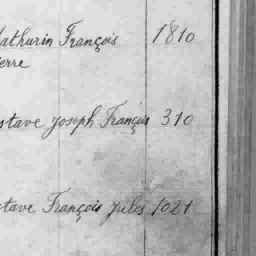 athurin François 1810
ierre
stave Joseph François 310
ctave François Jules 1021